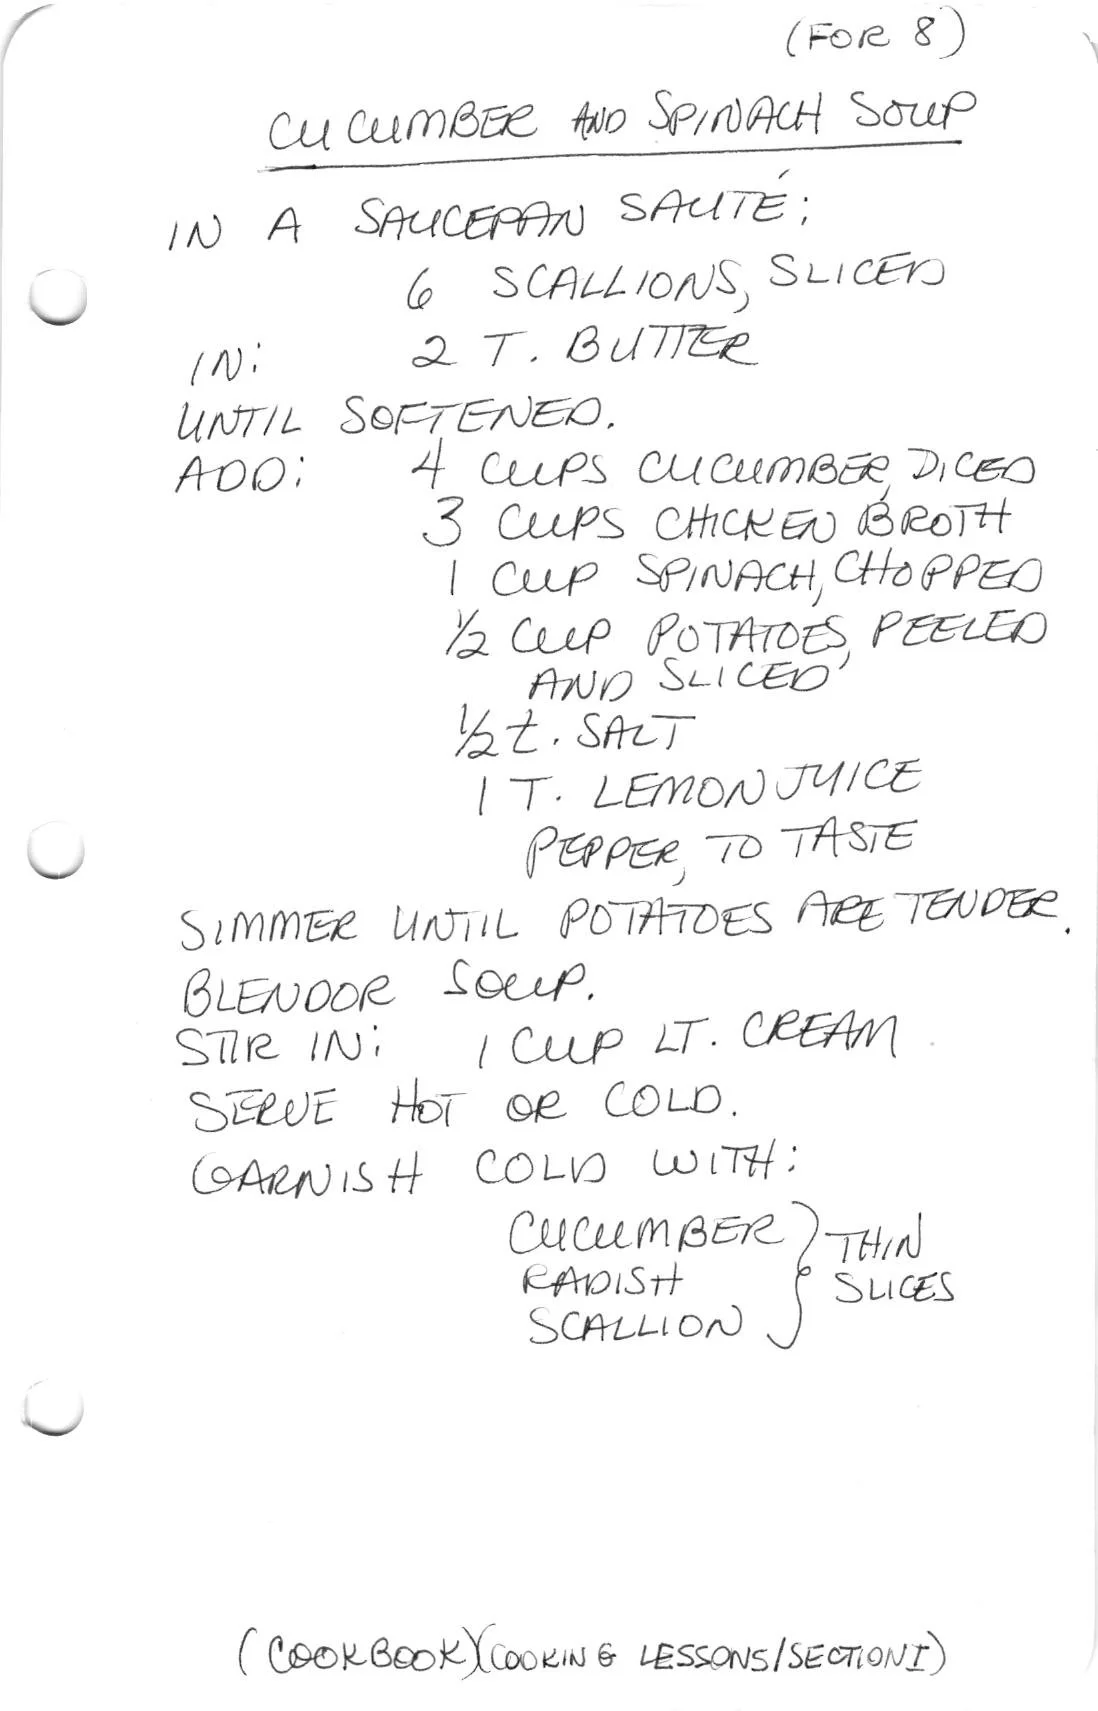 (FOR 8)
CUCUMBER AND SPINACH SOUP
IN A SAUCEPAN SAUTÉ:
6 SCALLIONS, SLICED
IN: 2 T. BUTTER
UNTIL SOFTENED.
ADD: 4 CUPS CUCUMBER, DICED
3 CUPS CHICKEN BROTH
1 CUP SPINACH, CHOPPED
½ CUP POTATOES, PEELED
AND SLICED
½ t. SALT
1 T. LEMON JUICE
PEPPER, TO TASTE
SIMMER UNTIL POTATOES ARE TENDER.
BLENDOR SOUP.
STIR IN: 1 CUP LT. CREAM
SERVE HOT OR COLD.
GARNISH COLD WITH:
CUCUMBER } THIN
RADISH SLICES
SCALLION
(COOKBOOK)(COOKING LESSONS/SECTION I)